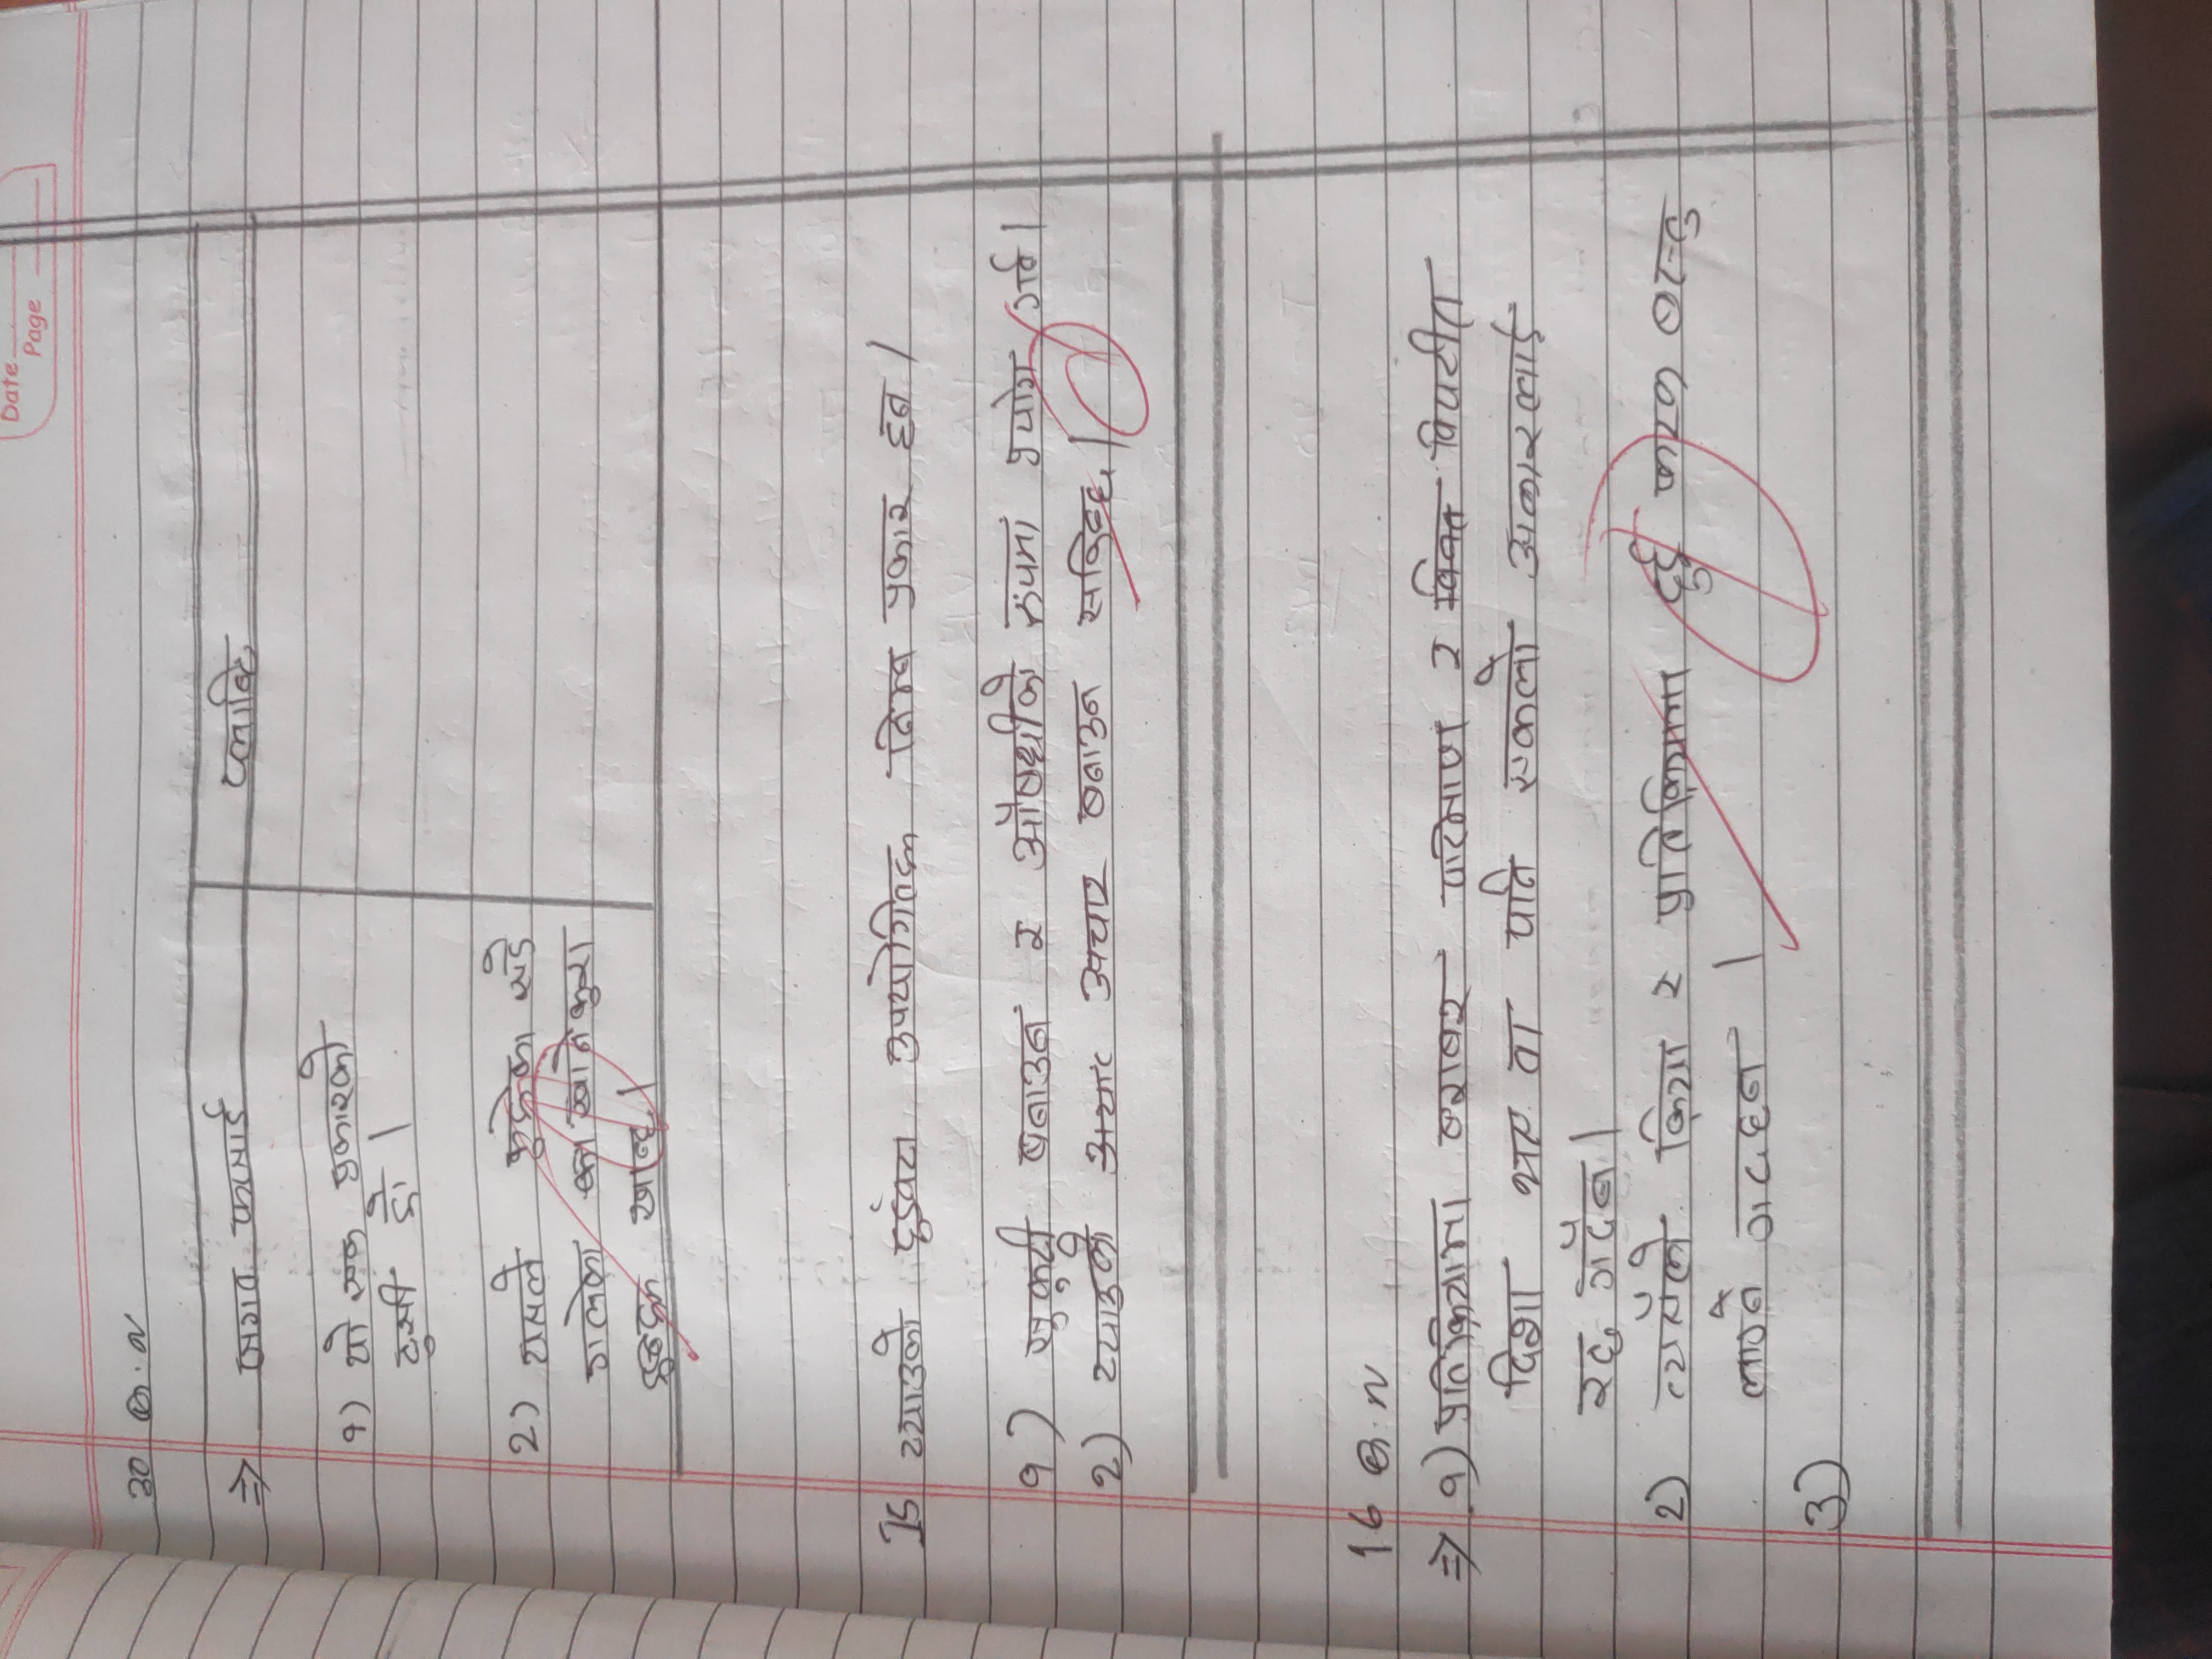 Date
Page
30 Q.N
⇒ जगत फन्जाई
प्लान्टि
१) यो एक प्रकारको
ढुसी हो ।
२) यसले कुहेका सडे
गलेका खानेकुरा
खान्छ ।
15 च्याउको दुईवटा उपयोगिताहरू निम्न प्रकार छन ।
१) सुकुटी बनाउन र औषधीको रूपमा प्रयोग गर्न ।
२) च्याउको अचार बनाउन सकिन्छ ।
16 Q.N
⇒ १) प्रतिक्रियामा बराबर परिमाण र विपरीत
दिशा भए ता पनि एकले अर्कालाई
रद्द गर्दैन ।
२) त्यसैले क्रिया र प्रतिक्रियामा दुई फरक बस्तु
लाग्ने गर्दछन ।
3)